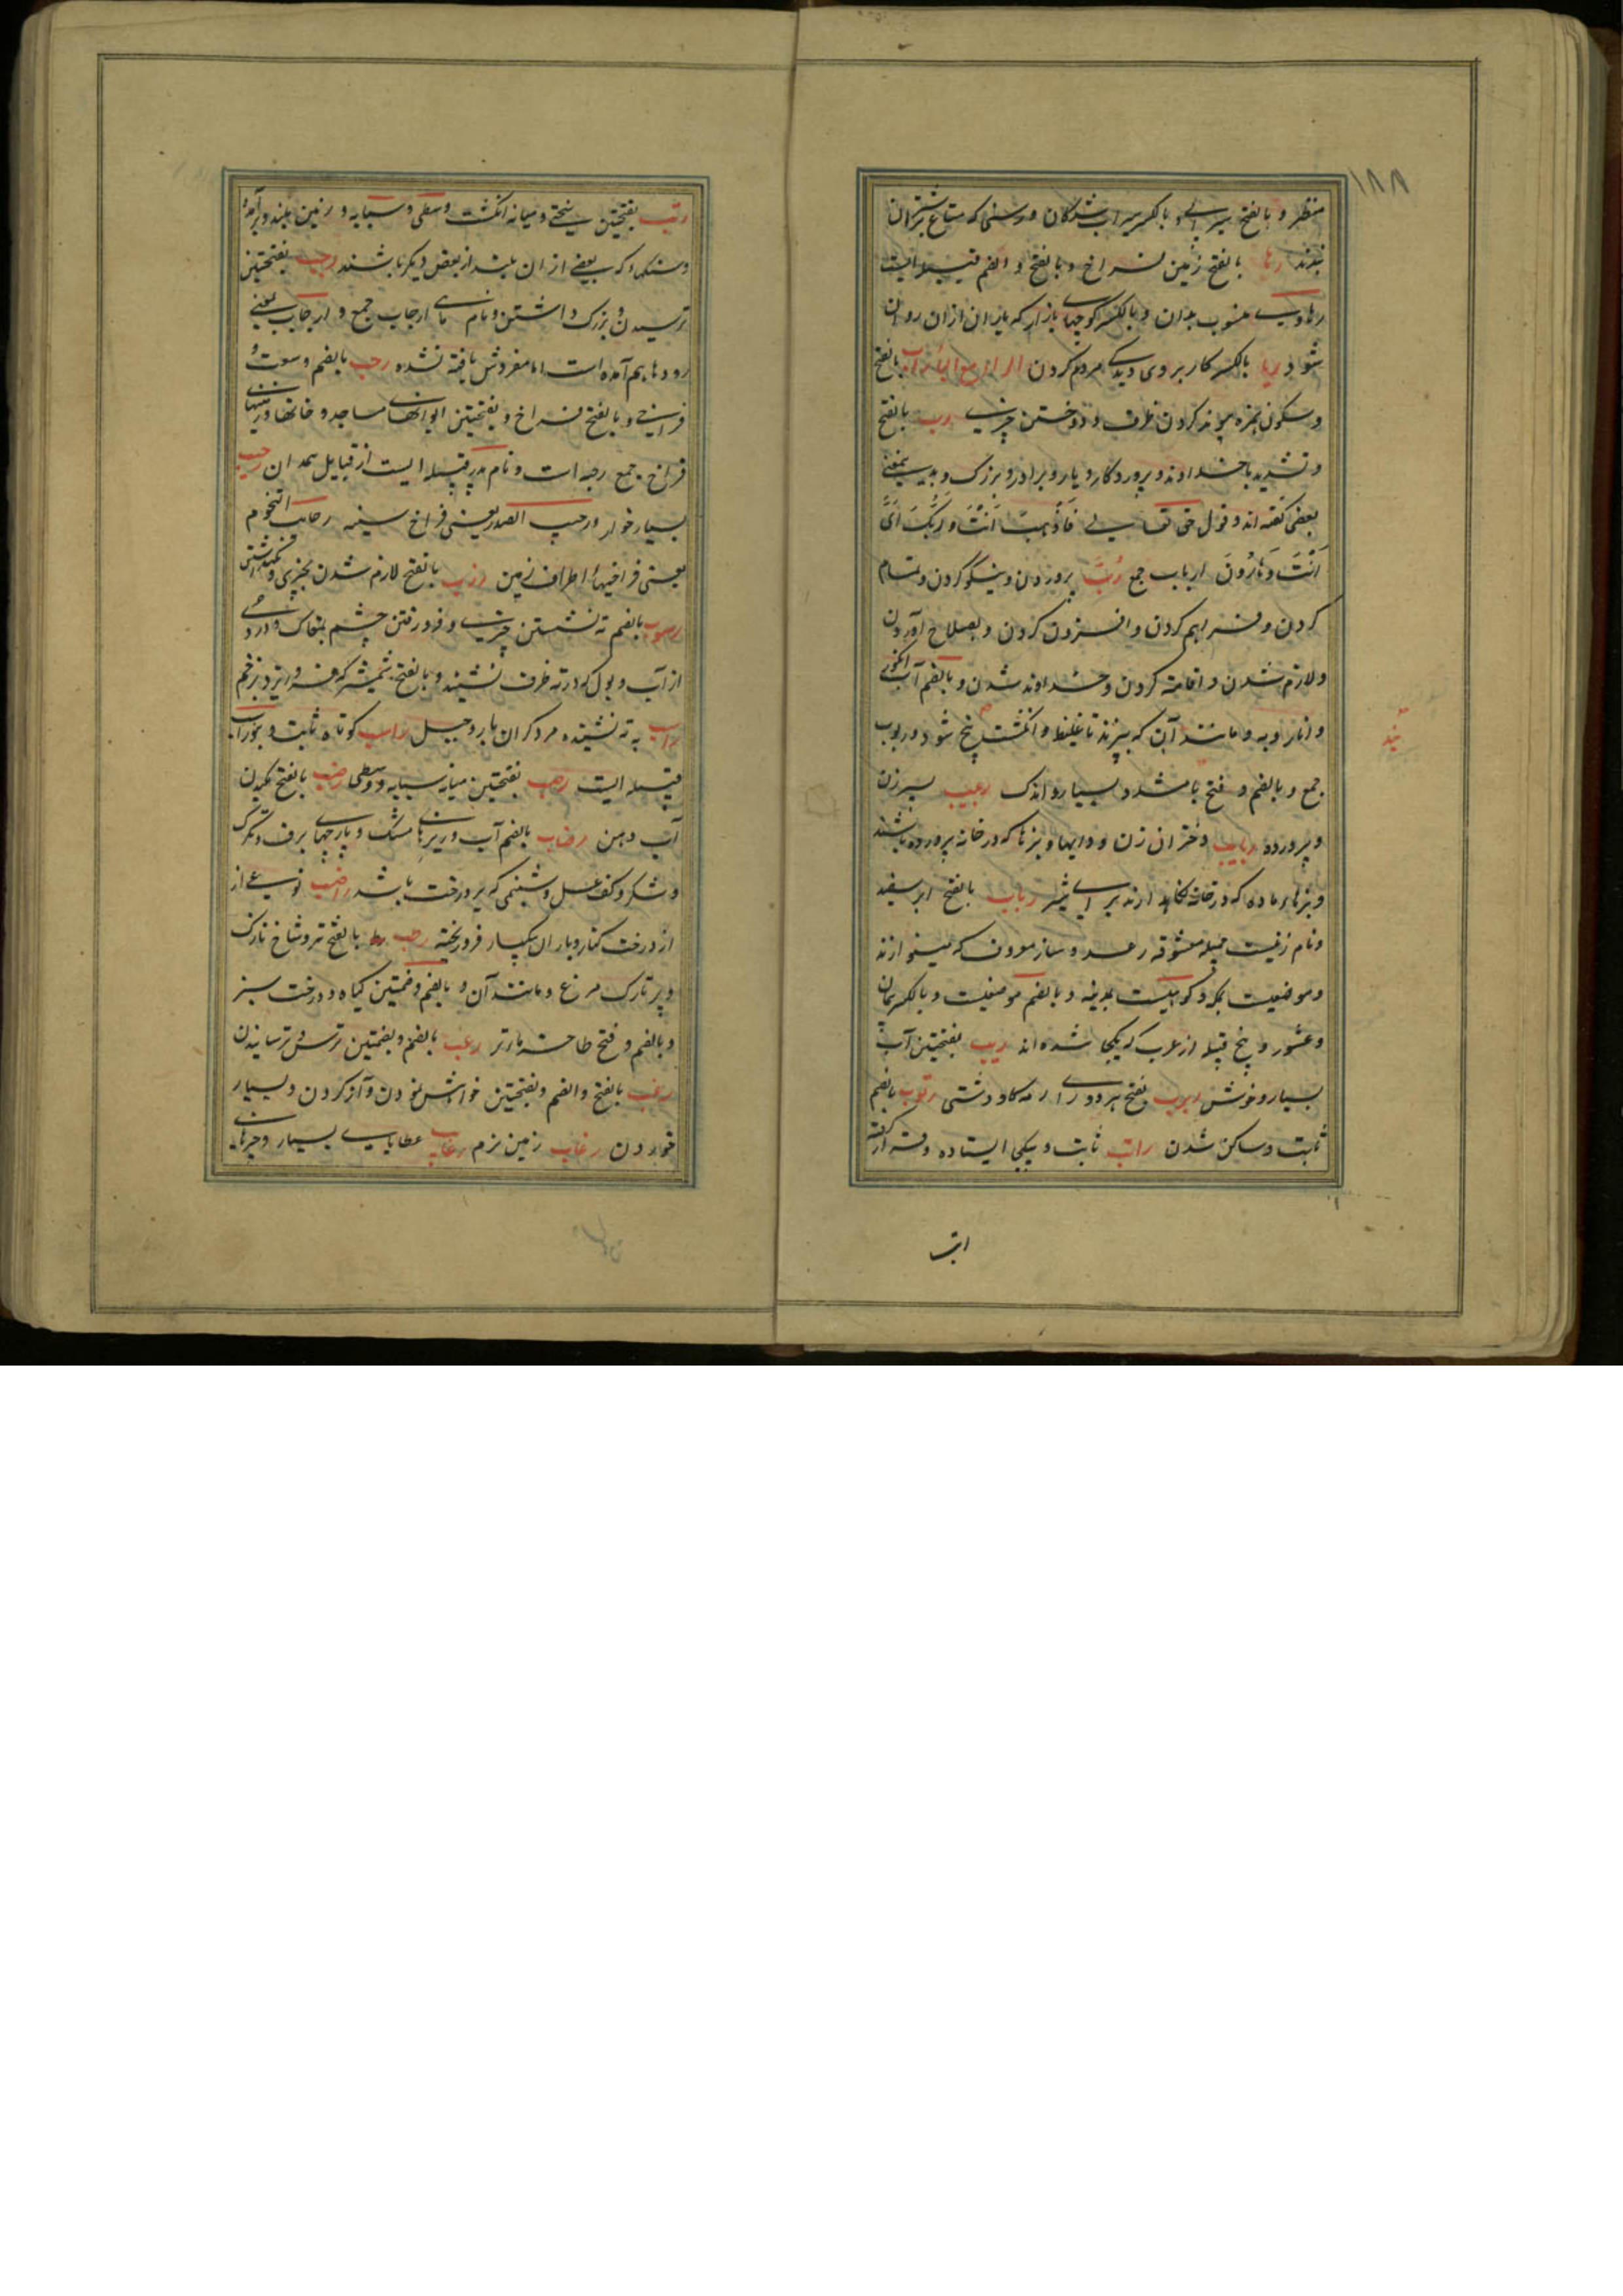 ۱۸۸
منظر و بالفتح سیرابی و بالکسر سیراب شدگان و رسنی که متاع بر شتران
بندند رها بالفتح زمین فراخ و بالفتح و الضم قبیله ایست
رهاوی منسوب بدان و بالکسر کوچهای بازار که باران ازان روان
شود ریا بالکسر کار بروی و دید مردم کردن الراء مع الباء رأب بالفتح
و سکون همزه پیوند کردن ظرف و دوختن چیزی رب بالفتح
و تشدید با خداوند و پروردگار و یار و برادر و بزرگ و بدین معنی
بعضی گفته اند و قول حق تعالی فَاذْهَبْ اَنْتَ وَ رَبُّكَ اَیْ
اَنْتَ وَ هَارُونَ ارباب جمع رُبَّ پروردن و نیکو کردن و تمام
کردن و فراهم کردن و افزون کردن و بصلاح آوردن
و لازم شدن و اقامت کردن و خداوند شدن و بالضم آب انگور
و انار و به و مانند آن که بپزند تا غلیظ و انگشت پیچ شود و ربوب
جمع و بالضم و فتح با مشدد بسیار و اندک ربیب پسر زن
و پرورده ربایب دختران زن و دایها و بزها که در خانه پرورده باشند
و بزهای ماده که در خانه نگاهدارند برای شیر رباب بالفتح ابر سفید
و نام زنیست جمیله معشوقه رعد و ساز معروف که مینوازند
و موضعیست بمکه و کوهیست بمدینه و بالضم موضعیست و بالکسر پیمان
و عشور و پنج قبیله از عرب که یکجا شده اند ربب بفتحتین آب
بسیار و خوش ربرب بفتح هر دو را رمه گاو دشتی رتوب بالضم
ثابت و ساکن شدن راتب ثابت و یکجا ایستاده و قرار گرفته
رتب
رتب بفتحتین سختی و میانه انگشت وسطی و سبابه و زمین بلند و برآمده
و سنگها که بعضی از ان بلند از بعض دیگر باشند رجب بفتحتین
ترسیدن و بزرگ داشتن و نام ماهی ارجاب جمع و ارجاب بمعنی
رودها هم آمده است اما مفردش یافته نشده رحب بالضم وسعت و
فراخی و بالفتح فراخ و بفتحتین ایوانهای مساجد و خانها و زمینهای
فراخ جمع رحبه است و نام پدر قبیله ایست از قبایل همدان رحیب
بسیار خوار و رحیب الصدر یعنی فراخ سینه رحایب التخوم
یعنی فراخیهاء اطراف زمین رزب بالفتح لازم شدن بچیزی
رسوب بالضم ته نشستن چیزی و فرو رفتن چشم بمغاک و دردی
از آب و بول که در ته ظرف نشیند و بالفتح شمشیر که فرو رود در زخم
راسب به ته نشیننده مرد گران بار و جبل راسب کوه ثابت و بنوراسب
قبیله ایست رصب بفتحتین میانه سبابه و وسطی رضب بالفتح مکیدن
آب دهن رضاب بالضم آب و ریزهای مشک و پارچهای برف و تگرک
و شکر و کف عسل و شبنمی که بر درخت باشد راضب نوعی از
از درخت کنار و باران بسیار فرو ریخته رطب بالفتح تر و شاخ نازک
و پر نازک مرغ و مانند آن و بالضم و ضمتین گیاه و درخت سبز
و بالضم و فتح طا خرماء تر رعب بالضم و بضمتین ترس و ترسانیدن
رغب بالفتح و الضم و بفتحتین خواهش نمودن و آز کردن و بسیار
خوردن رغاب زمین نرم رغایب عطایای بسیار و چیزهای